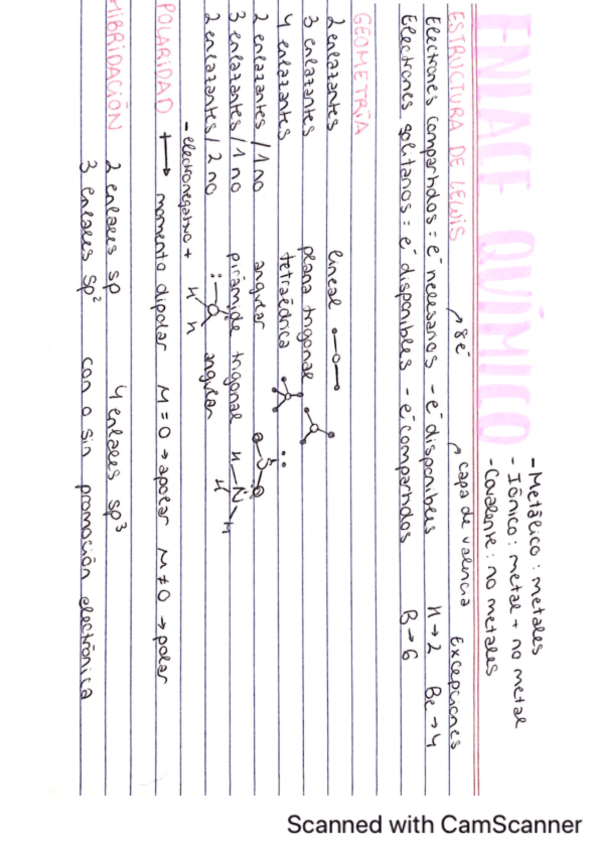 ENLACE QUÍMICO
- Metálico : metales
- Iónico : metal + no metal
- Covalente : no metales
ESTRUCTURA DE LEWIS
8e⁻
capa de valencia
Excepciones
Electrones compartidos = e⁻ necesarios - e⁻ disponibles
H → 2 Be → 4
Electrones solitarios = e⁻ disponibles - e⁻ compartidos
B → 6
GEOMETRÍA
2 enlazantes lineal
3 enlazantes plana trigonal
4 enlazantes tetraédrica
2 enlazantes / 1 no angular
3 enlazantes / 1 no pirámide trigonal H-N-H
H
2 enlazantes / 2 no angular
H H
- electronegativo +
POLARIDAD momento dipolar M = 0 → apolar M ≠ 0 → polar
HIBRIDACIÓN 2 enlaces sp 4 enlaces sp³
3 enlaces sp² con o sin promoción electrónica
Scanned with CamScanner